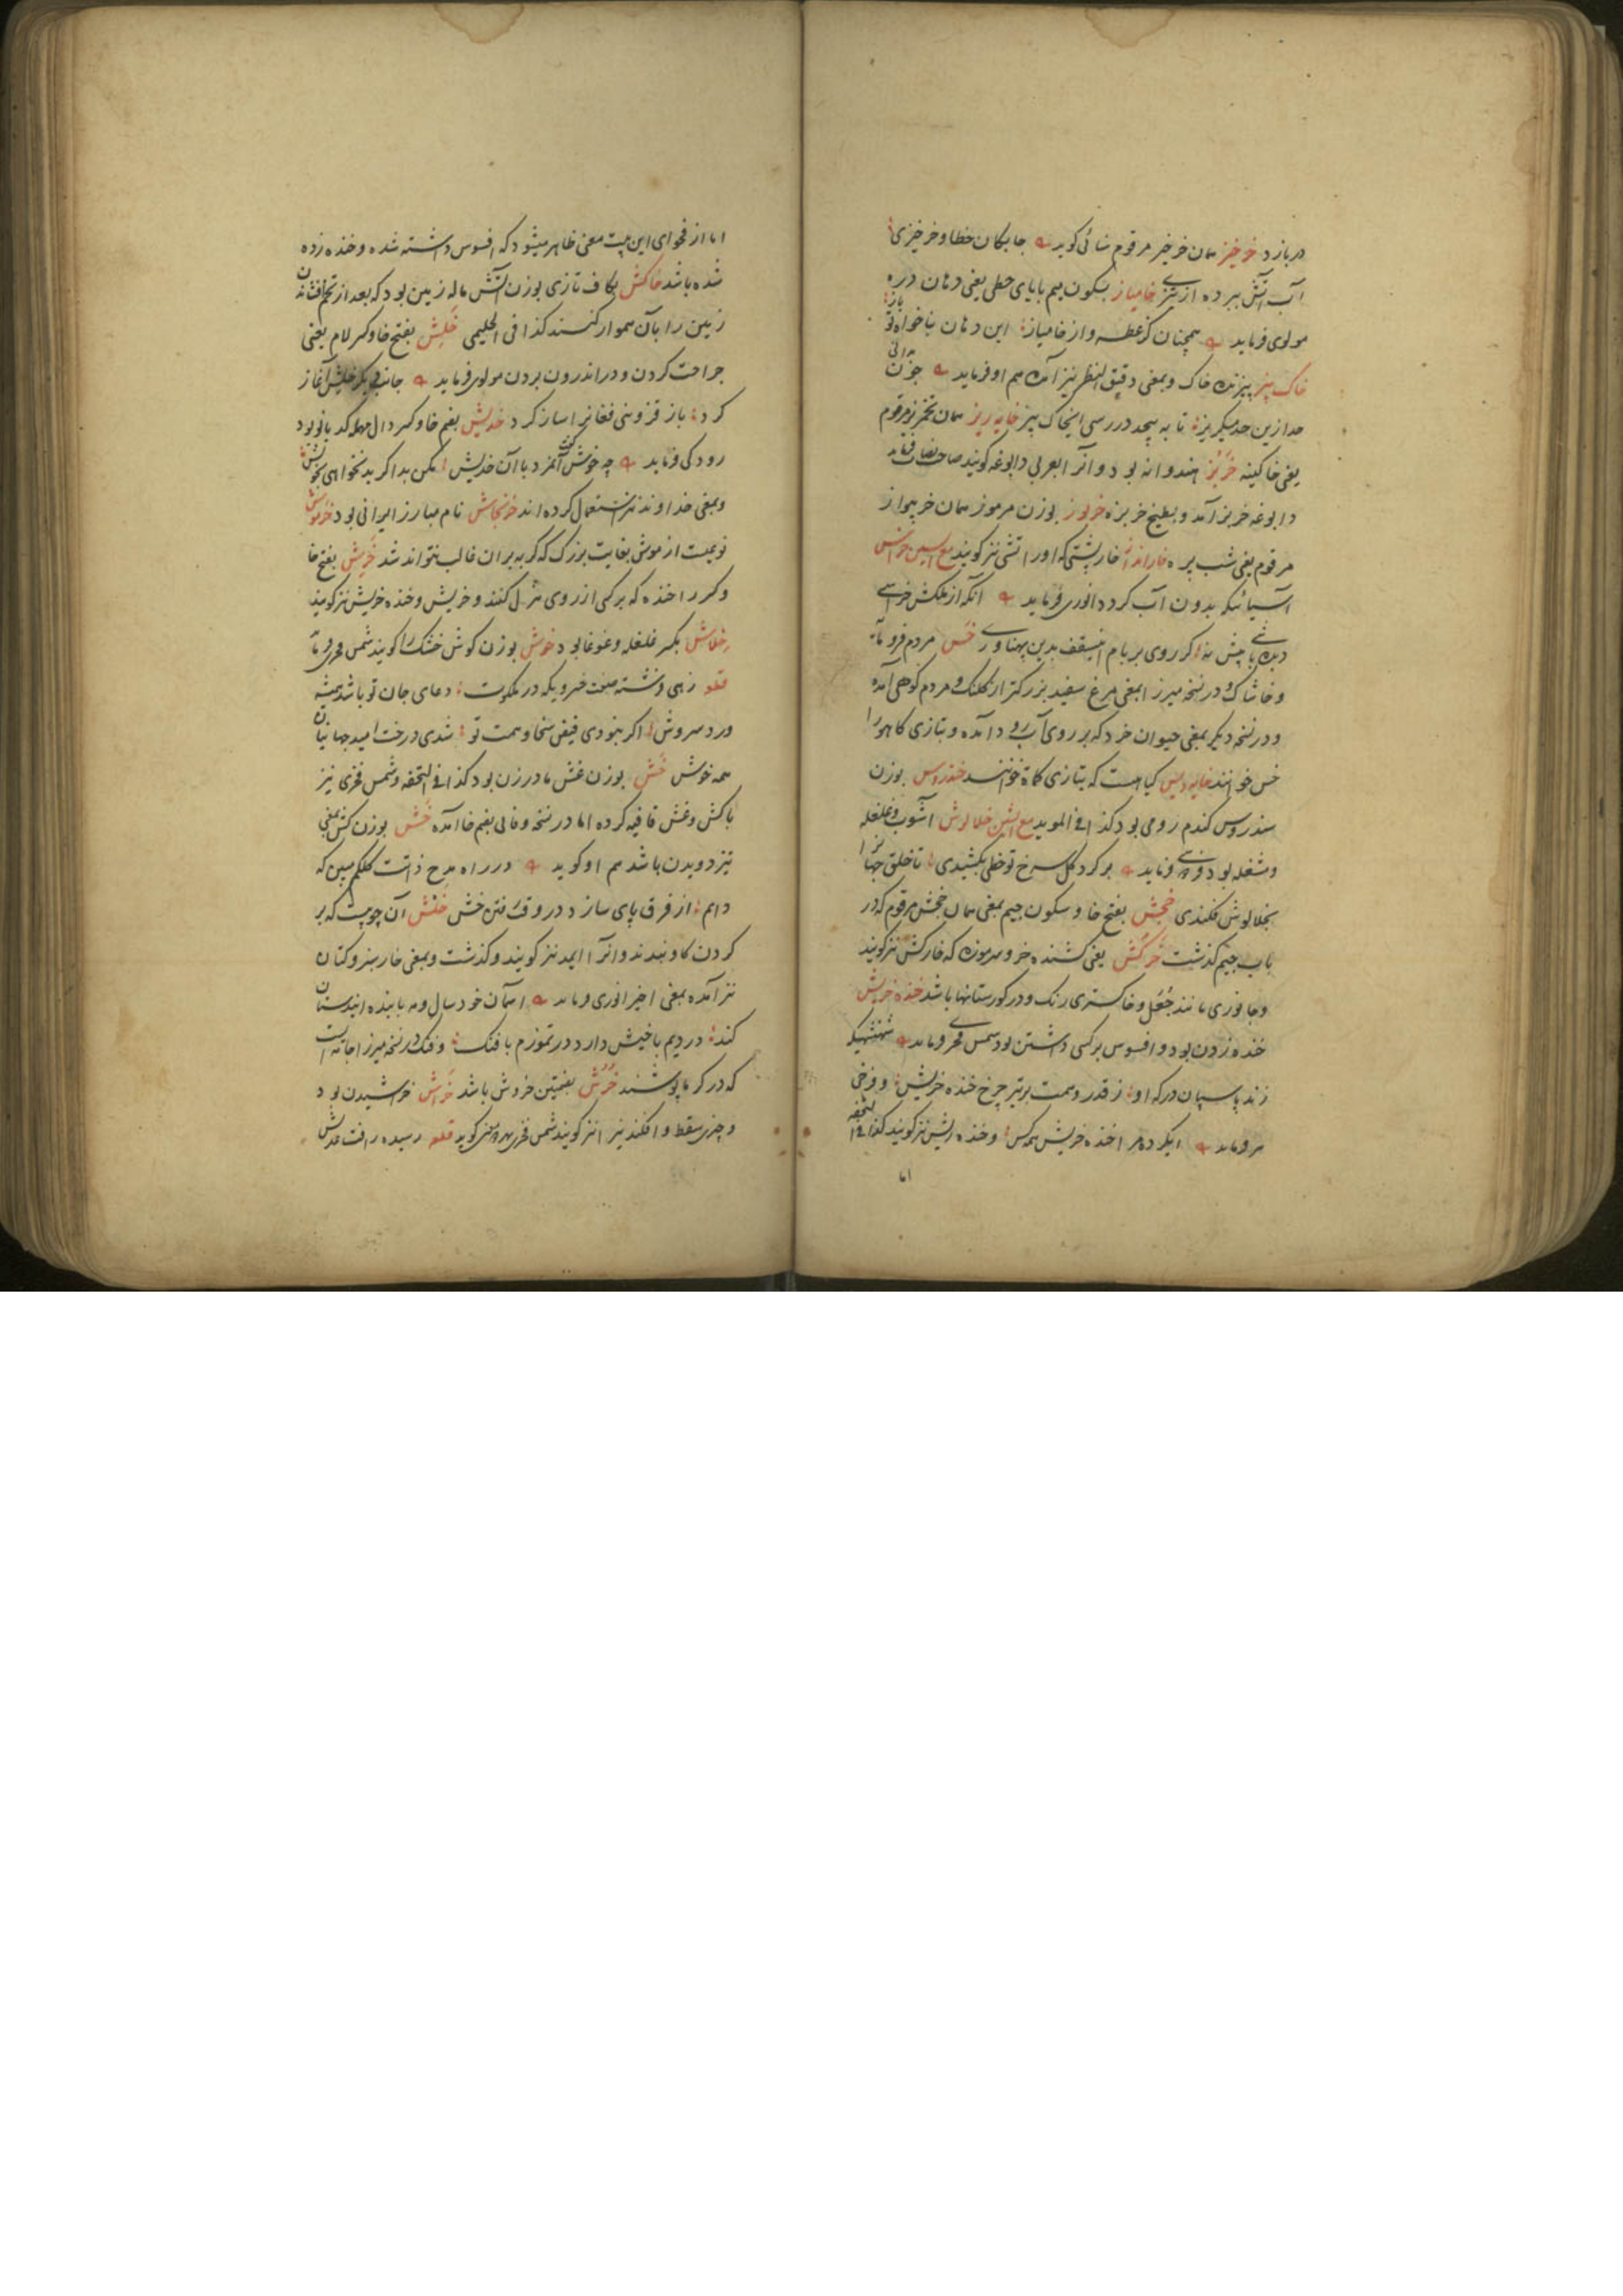 در بازد خرخیز همان خرخیر مرقوم سنائی کوید جابکان خطا و خرخیزی
آب آتش ببرده از تیزی خامیاز بسکون میم بایای حطی یعنی دهان دره
مولوی فرماید همچنان کز عطسه و از خامیاز این دهان
خاک بیز بیزنده خاک و بمعنی دقیق النظر نیز آمده هم او فرماید
خایه ریز همان مرقوم
یعنی خاکینه خربز هندوانه بود و آنرا بعربی دابوغه کویند صاحب نصاب
دابوغه خربز آمد و بطیخ خربزه خربوز بوزن مرموز همان خربیواز
مرقوم یعنی شب پره خارانداز خارپشتی که او را تشی نیز کویند مع السین خراس
آسیائیکه بدون آب کردد انوری فرماید آنکه از ملکش خراسی
خس مردم فرومایه
و خاشاک و در نسخه میرزا بمعنی مرغ سفید بزرکتر از کلنک و مردم کوهی آمده
و در نسخه دیکر بمعنی حیوان خرد که بر روی آب رود آمده و بتازی کاهو را
خس خوانند خایه دیس کیاهیست که بتازی کماة خوانند خندروس بوزن
سندروس کندم رومی بود کذا فی الموید مع الشین خلالوش آشوب و غلغله
و مشغله بود فرماید بر کرد کل سرخ تو خطی بکشیدی تا خلق جهانرا
بخلالوش فکندی خجش بفتح خا و سکون جیم بمعنی همان خجش مرقوم که در
باب جیم کذشت خرکش یعنی کشنده خر و سرموزه که خارکش نیز کویند
و جانوری مانند جعل و خاکستری رنک و در کورستانها باشد خنده خریش
خنده زدن بود و افسوس بر کسی داشتن بود شمس فخری فرماید شهنشهیکه
زند پاسبان درکه او ز قدر و همت برتیر چرخ خنده خریش و فرخی
فرماید ایکرده مر ا خنده خریش همه کس و خنده ریش نیز کویند کذا فی التحفه
اما
اما از فحوای این بیت معنی ظاهر میشود که افسوس داشته شده و خنده زده
شده باشد خاکش بکاف تازی بوزن آتش ماله زمین بود که بعد از تخم افشانی
زمین را بآن هموار کنند کذا فی الحلیمی خلش بفتح خا و کسر لام یعنی
جراحت کردن و در اندرون بردن مولوی فرماید جانب دیکر خلش آغاز
کرد باز قزوینی فغانرا ساز کرد خدیش بفتح خا و کسر دال مهمله کدبانو بود
رودکی فرماید چه خوش کفت آنمزد با آن خدیش مکن بد اکر بد نخواهی بخویش
و بمعنی خداوند نیز استعمال کرده اند خرنجاش نام مبارز ایرانی بود خرموش
نوعیست از موش بغایت بزرک که کربه بر آن غالب نتواند شد خریش بفتح خا
و کسر را خنده که بر کسی از روی هزل کنند و خریش و خنده خریش نیز کویند
خلاش بکسر غلغله و غوغا بود خوش بوزن کوش خشک را کویند شمس فخری فرماید
قطعه زهی فرشته صفت خسرویکه در ملکوت دعای جان تو باشد همیشه
ورد سروش اکر نبودی فیض سخا و همت تو شدی درخت امید جهانیان
همه خوش خش بوزن غش مادر زن بود کذا فی التحفه و شمس فخری نیز
با کش و غش قافیه کرده اما در نسخه وفائی بضم خا آمده خش بوزن کش یعنی
تیز دویدن باشد هم او کوید در راه مدح ذات کلکم ببین که
دایم از فرق پای سازد در وقت رفتن خش خنش آن چوبیست که بر
کردن کاو نهند و آنرا ایمد نیز کویند و کذشت و بمعنی خار سبز و کتان
نیز آمده بمعنی اخیر انوری فرماید آسمان خود سال و مه با بنده
کند در دیم با خیش دارد در تموزم با فنک و فنک در نسخه میرزا جامه است
که در کرما پوشند خرش بضمتین خروش باشد خراش خراشیدن بود
و چیزی سقط و افکندنیرا نیز کویند شمس فخری بهر دو معنی کوید قطعه رسید